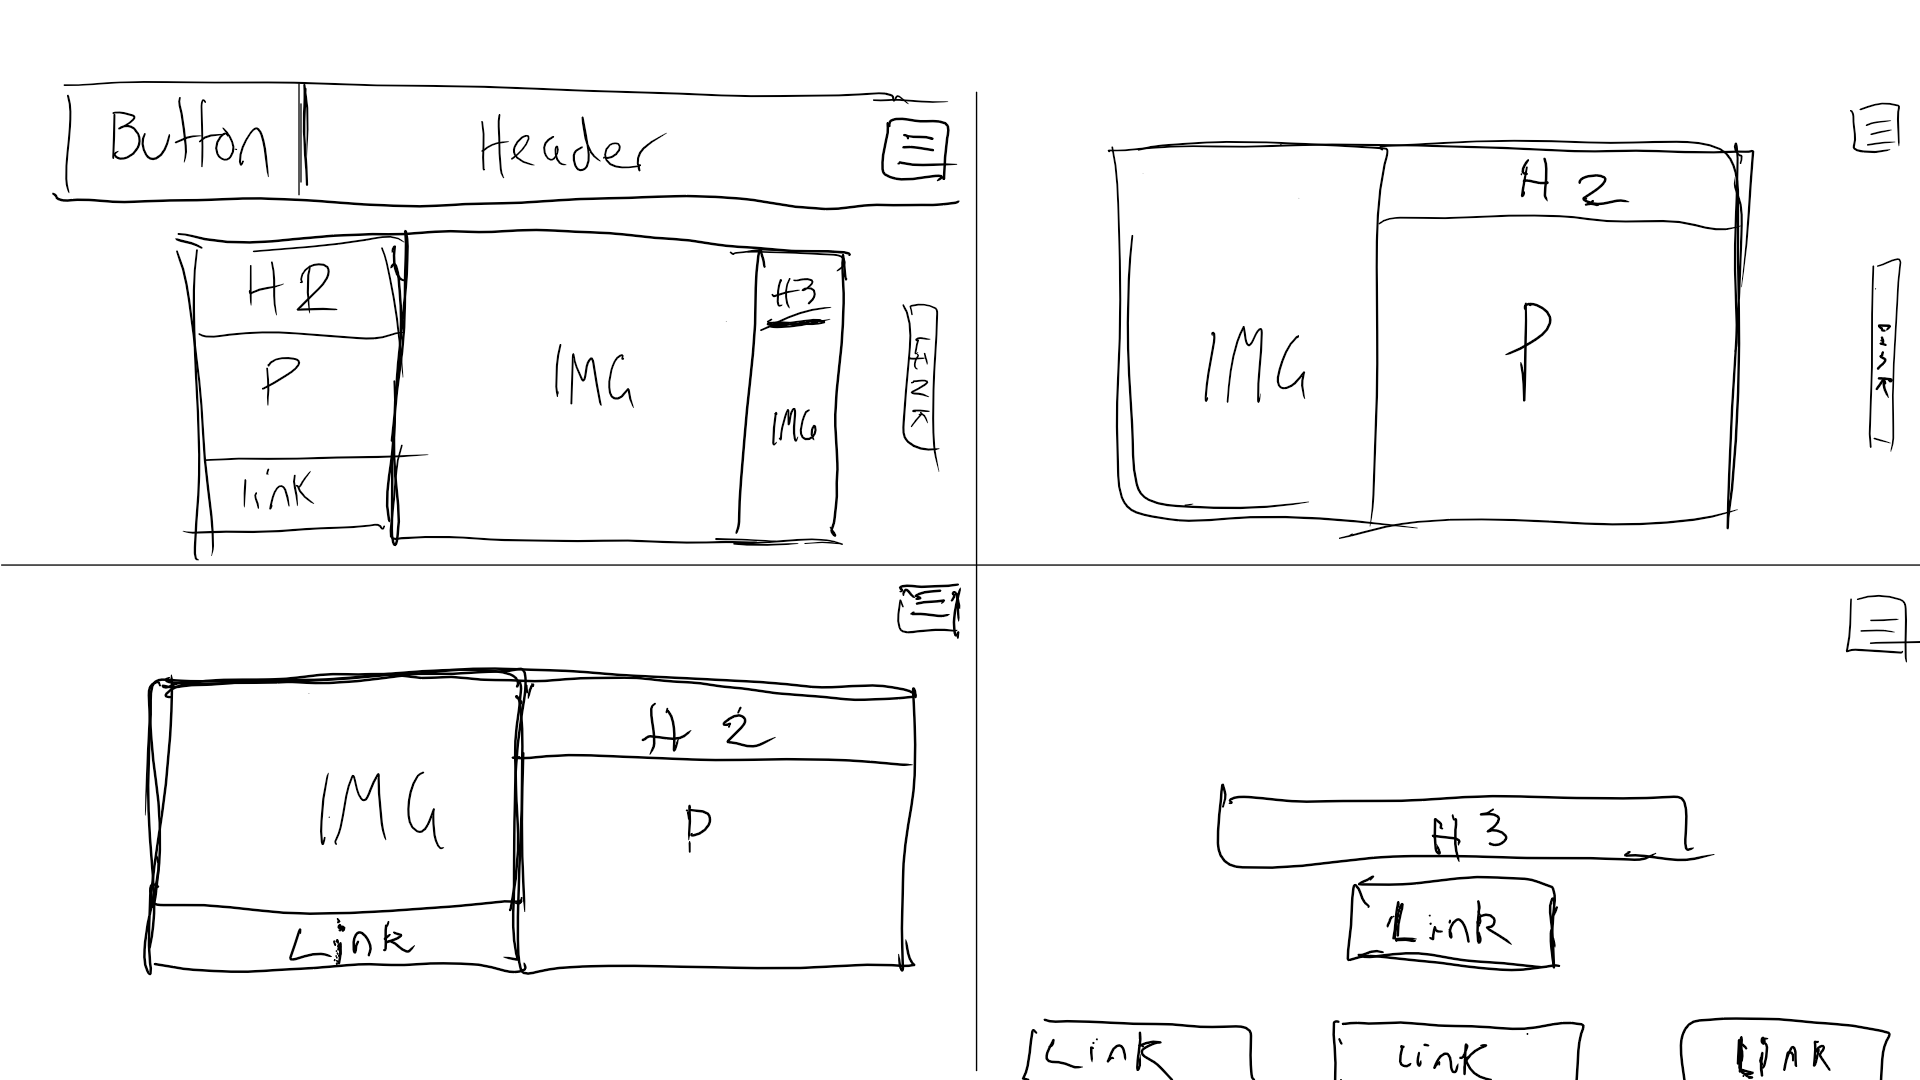 Button
Header
H2
P
link
IMG
H3
IMG
LINK
IMG
H2
P
IMG
Link
H2
P
H3
Link
Link
Link
Link